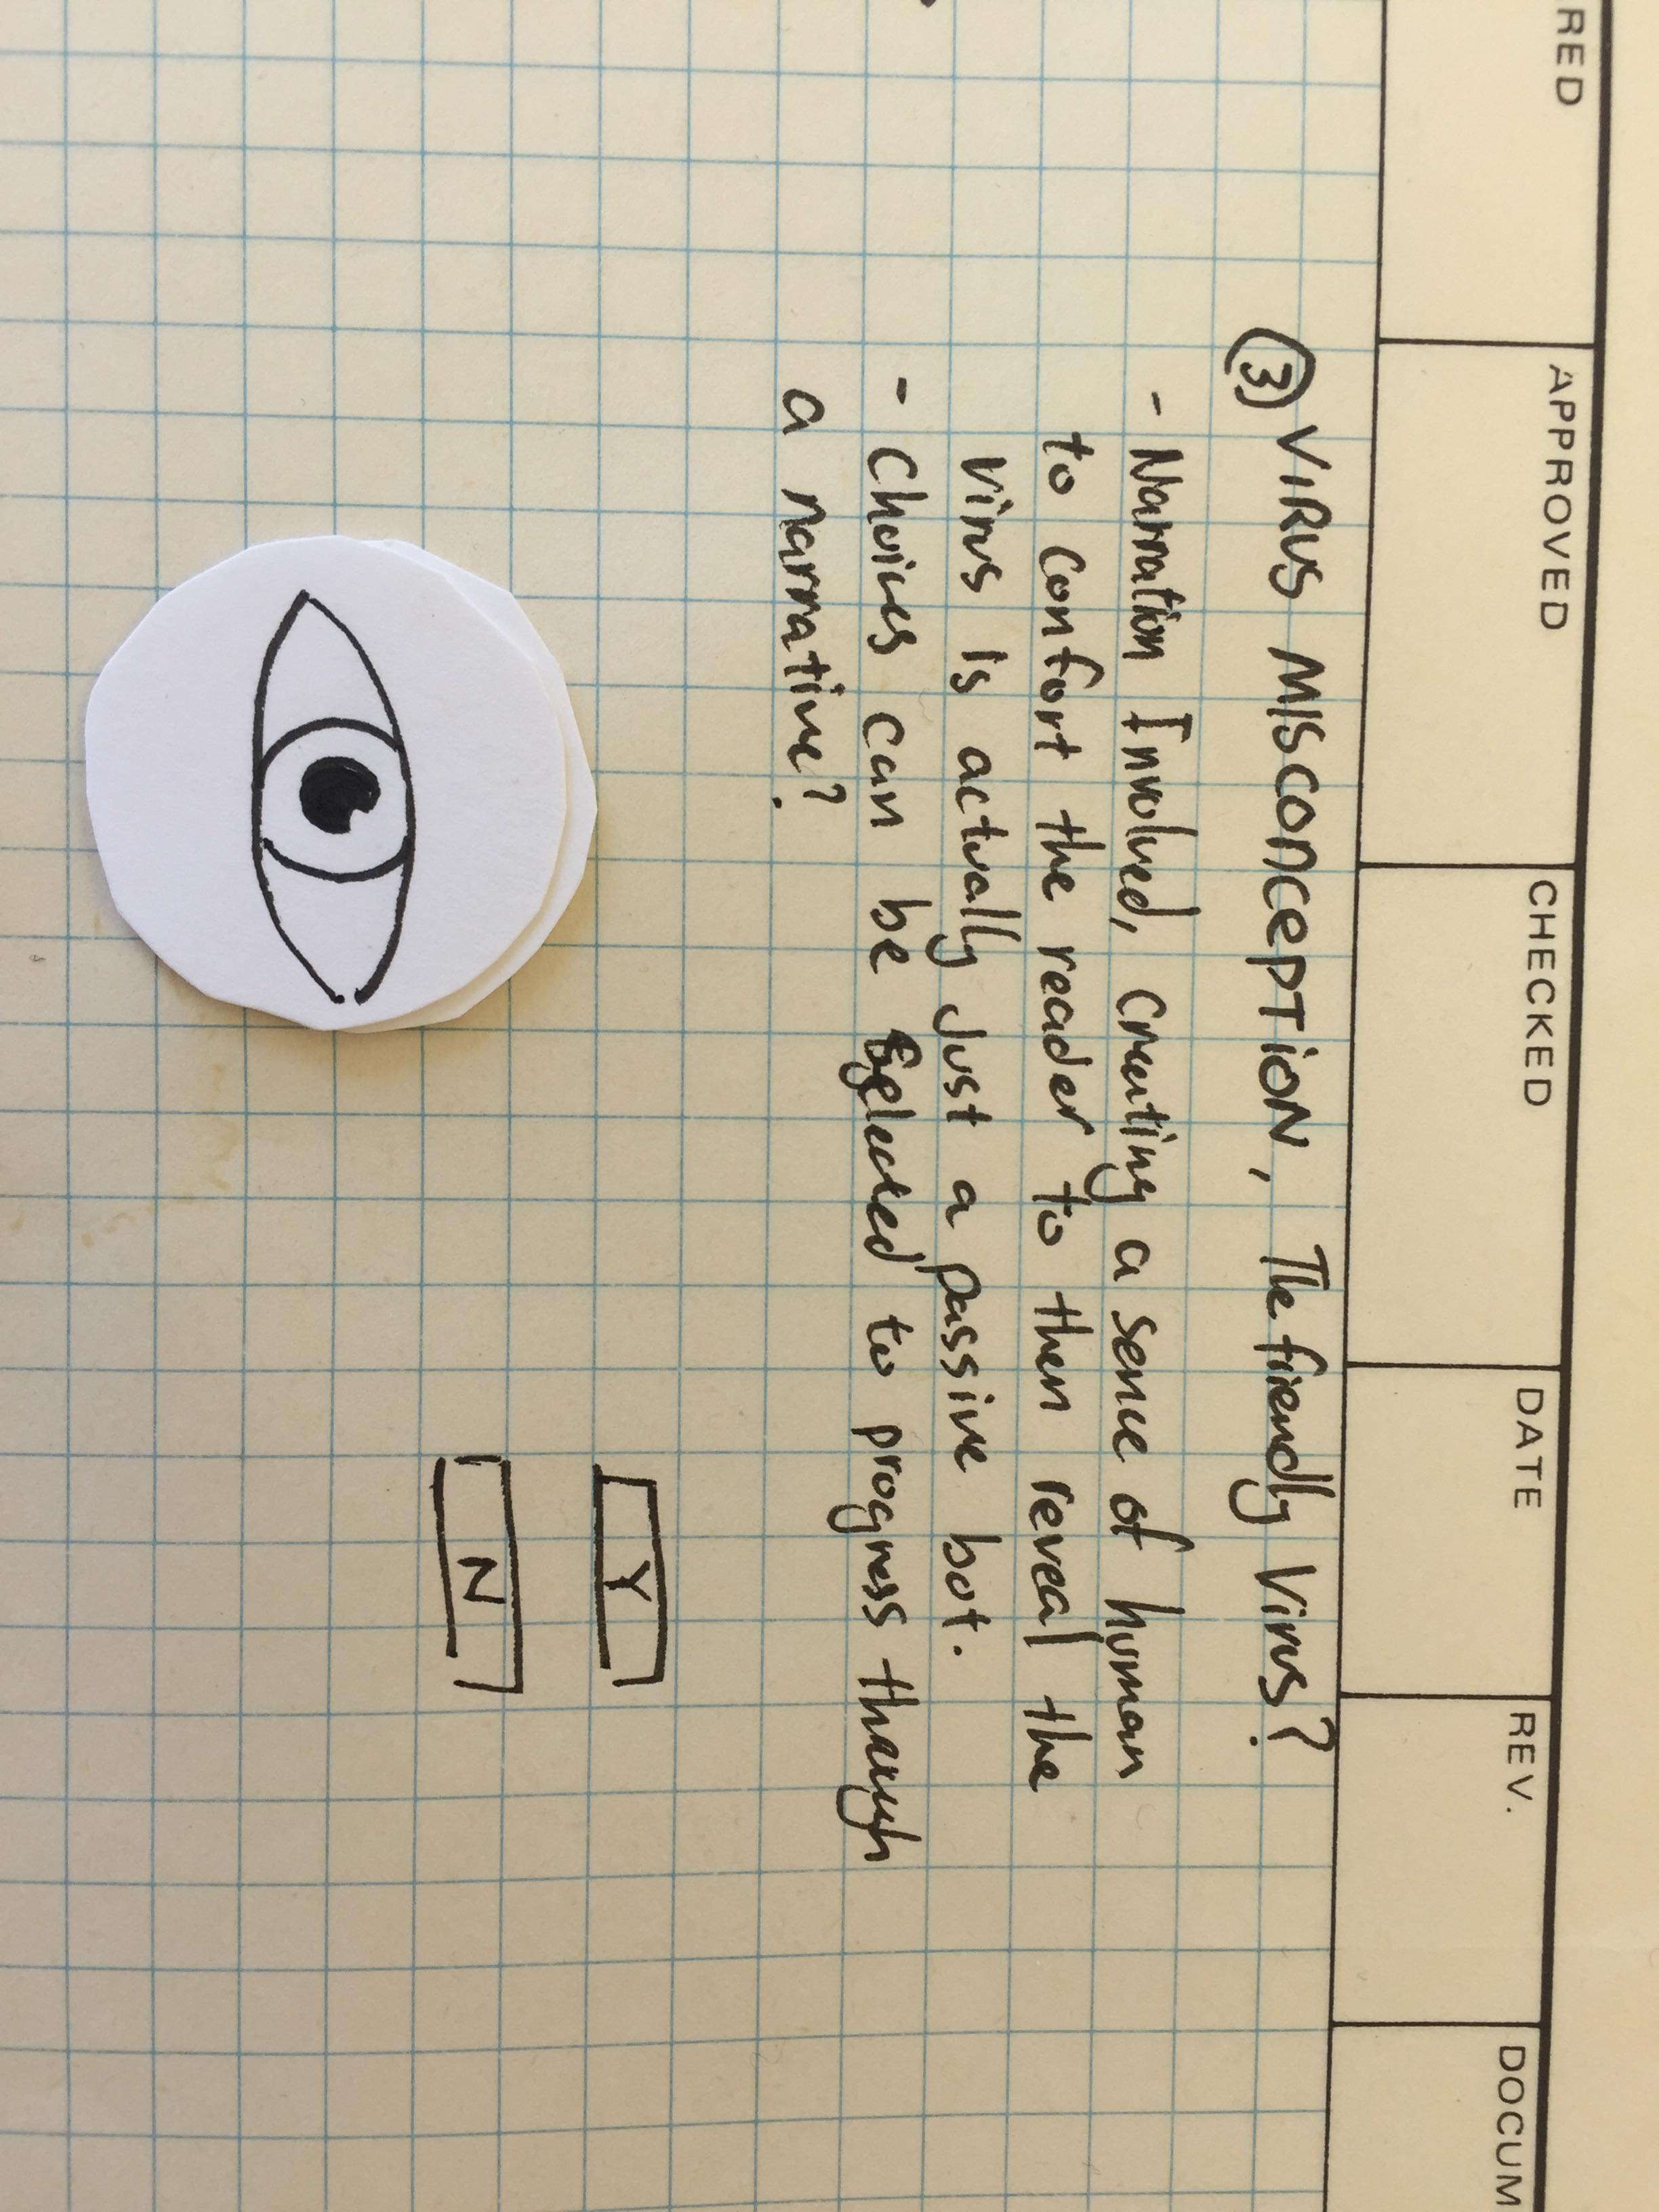 RED APPROVED CHECKED DATE REV. DOCUM
③ VIRUS MISCONCEPTION, The friendly Virus?
- Narration Involved, Creating a sence of human
to confort the reader to then reveal the
virus is actually just a passive bot.
- Choices can be Selected to progress though
a narrative?
Y
N